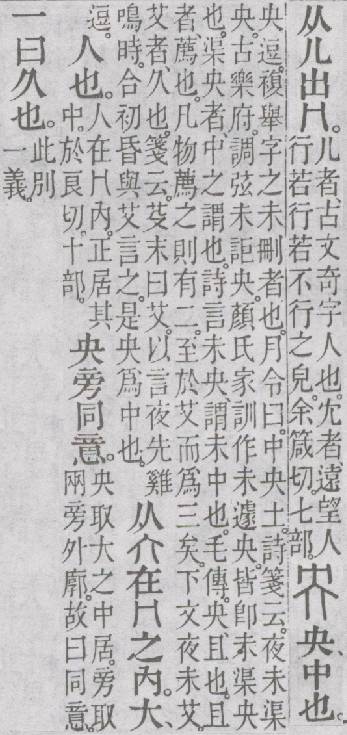 从儿出冂。
儿者、古文奇字人也。冘者、遠望人
行若行若不行之皃。余箴切。七部。
央、中也。
央、逗。複舉字之未刪者也。月令曰。中央土。詩箋云。夜未渠
央。古樂府。調弦未詎央。顏氏家訓作未遽央。皆卽未渠央
也。渠央者、中之謂也。詩言未央、謂未中也。毛傳。央、且也。且
者、薦也。凡物薦之則有二。至於艾而爲三矣。下文夜未艾。
艾者、久也。箋云。芟末曰艾。以言夜先雞
鳴時。合初昏與艾言之。是央爲中也。
从亣在冂之內。大、
逗。
人也。
人在冂內。正居其
中。於良切。十部。
央旁同意。
央取大之中居。旁取
兩旁外廓。故曰同意。
一曰久也。
此別
一義。